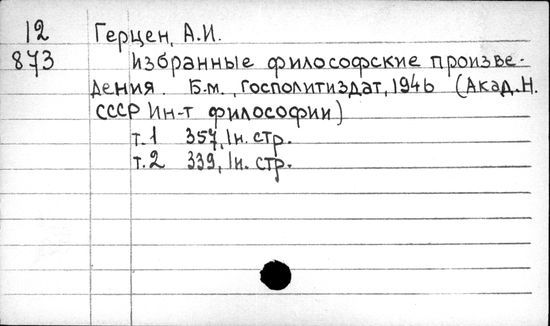 12 Герцен, А.И.
873 Избранные философские произве-
дения. Б.м., Госполитиздат, 1946 (Акад.Н.
СССР Ин-т философии)
т.1 357, 1н. стр.
т.2 339, 1н. стр.